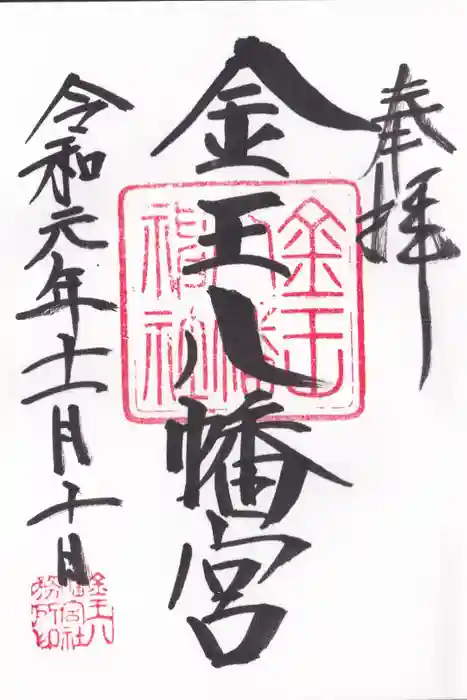 奉拝
金王八幡宮
令和元年十一月十日
金王八幡神社
金王八幡宮社務所印